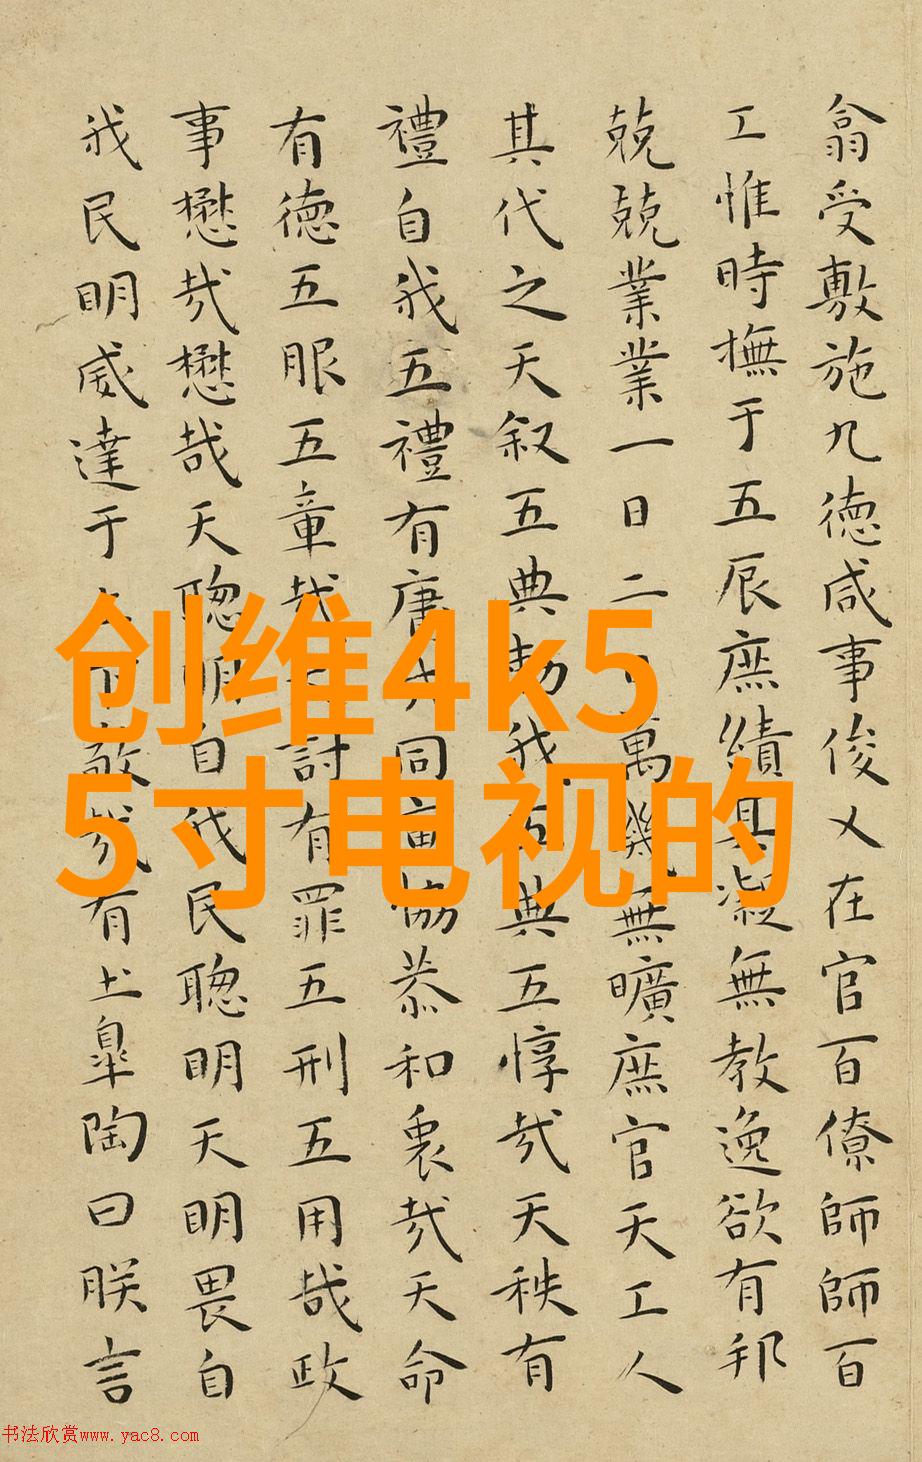 翕受敷施九德咸事俊乂在官百僚師師百
工惟時撫于五辰庶績其凝無教逸欲有邦
兢兢業業一日二日萬幾無曠庶官天工人
其代之天叙五典勅我五典五惇哉天秩有
禮自我五禮有庸哉同寅協恭和衷哉天命
有德五服五章哉天討有罪五刑五用哉政
事懋哉懋哉天聰明自我民聰明天明畏自
我民明威達于上下敬哉有土皐陶曰朕言
创维4k5
5寸电视的
书法欣赏www.yac8.com